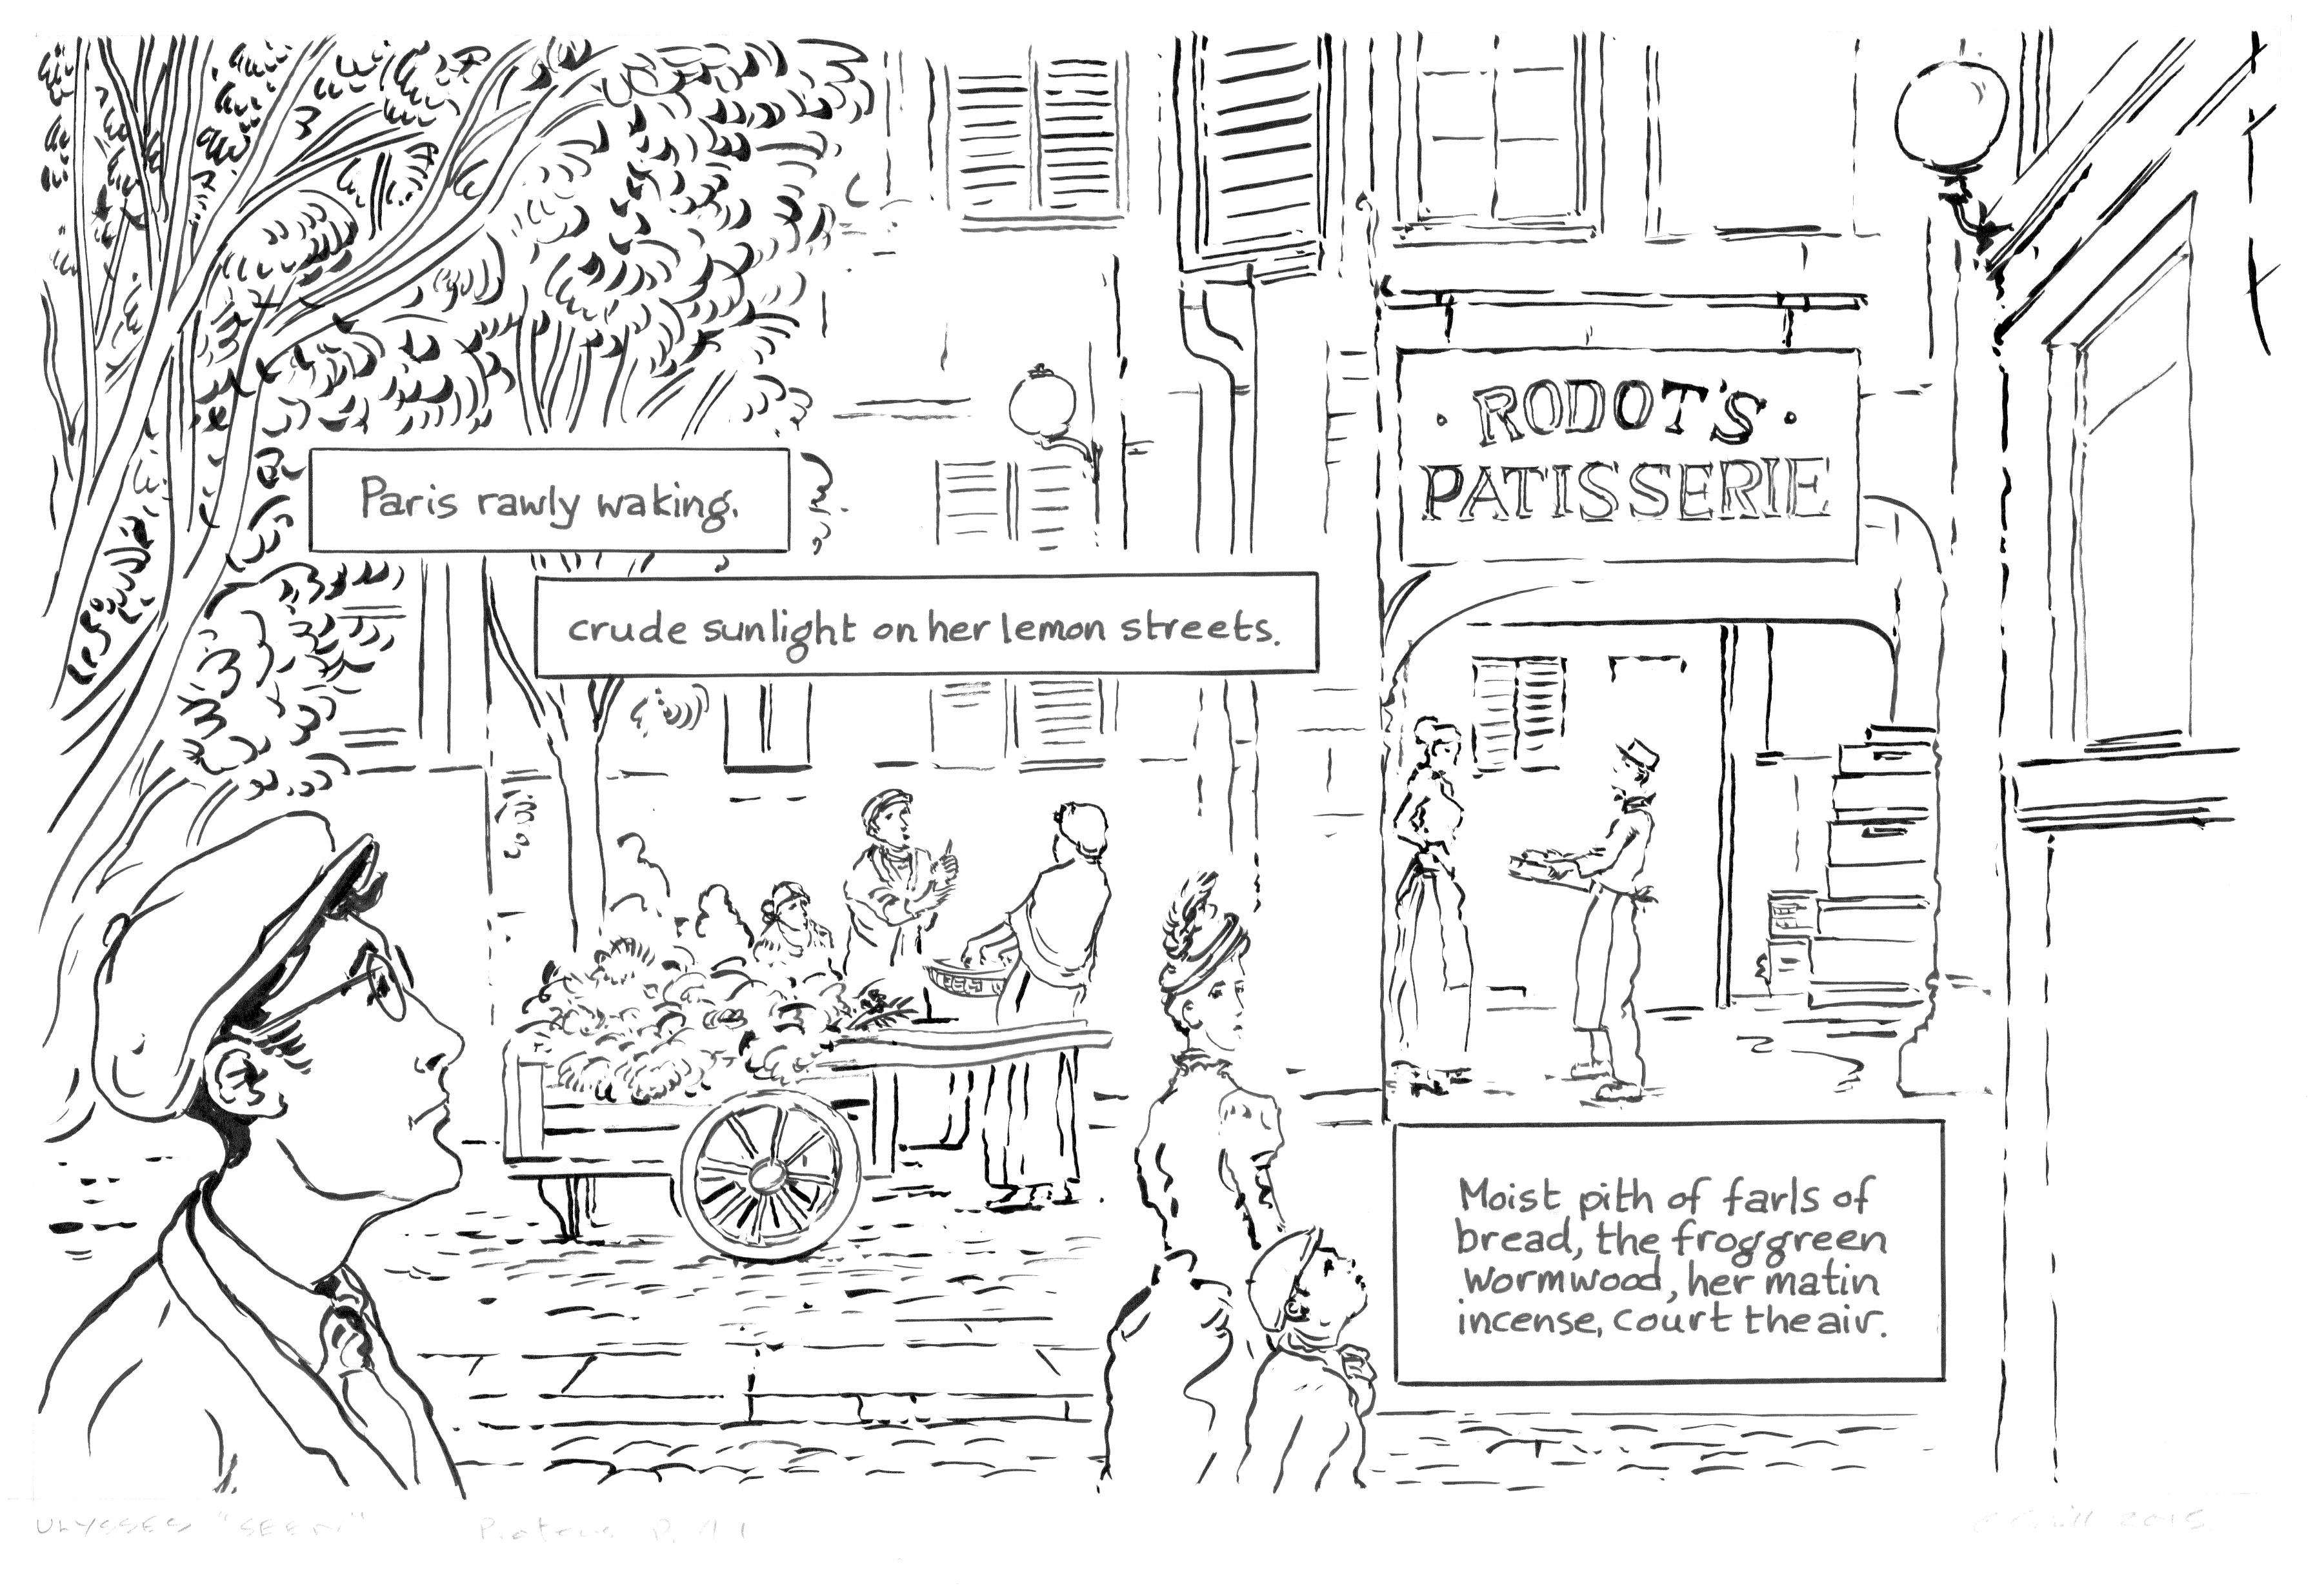 Paris rawly waking.
crude sunlight on her lemon streets.
· RODOT'S ·
PATISSERIE
Moist pith of farls of
bread, the froggreen
wormwood, her matin
incense, court the air.
ULYSSES "SEEN" Proteus P. 41
2015